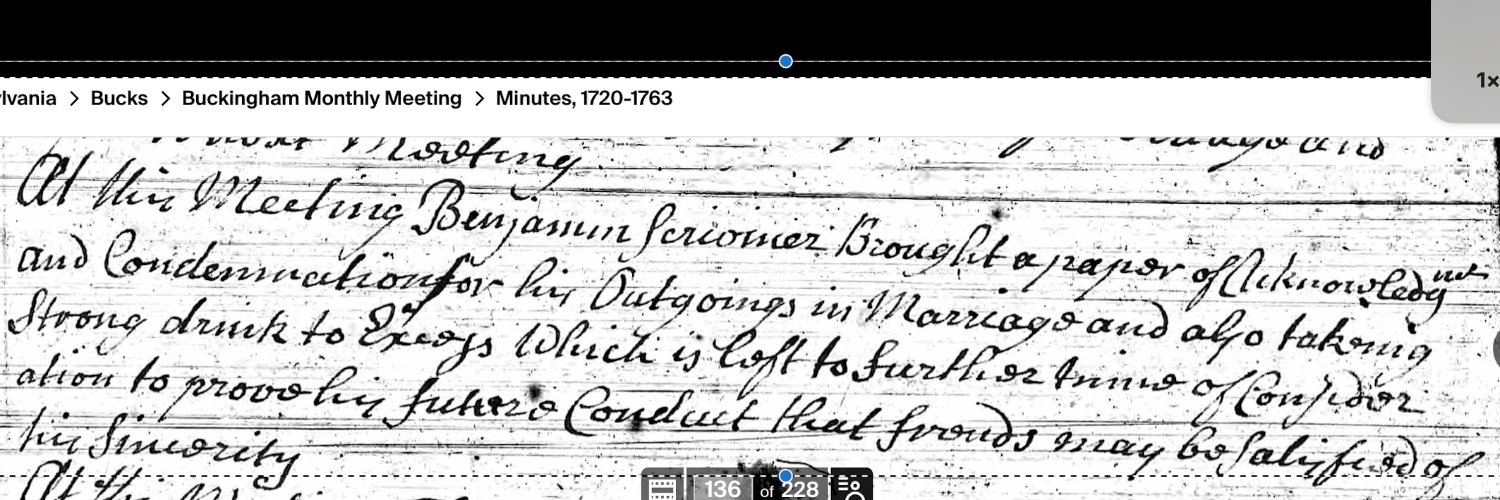 lvania > Bucks > Buckingham Monthly Meeting > Minutes, 1720-1763
1x
next Meeting and
At this Meeting Benjamin Scriomer Brought a paper of Acknowledgmt
and Condemnation for his Outgoings in Marriage and also takeing
Strong drink to Excess Which is left to further time of Consider
ation to prove his future Conduct that frends may be Satisfied of
his Sincerity
At this
136 of 228